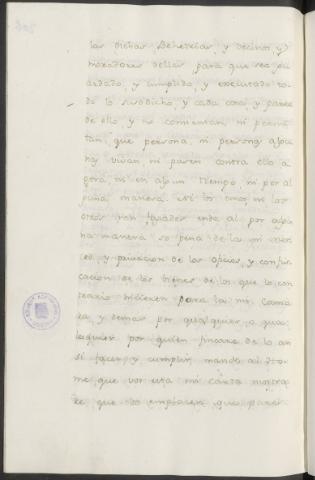 las dichas Behetrias, y vecinos, y
moradores dellas para que sea gu
ardado, y cumplido, y executado to
do lo susodicho, y cada cosa, y parte
de ello y no consientan, ni permi
tan, que persona, ni personas algu
nas vayan, ni pasen contra ello a
gora, ni en algun tiempo, ni por al
guna manera. E los unos, ni los
otros non fagades ende al por algu
na manera so pena de la mi merc
ed, y privacion de los oficios, y confis
cacion de los bienes de los que lo con
trario hicieren para la mi Cama
ra, y demas por qualquier, o qua
lesquier por quien fincare de lo an
si facer, y cumplir, mando al ho
me que vos esta mi carta mostra
re que vos emplace, que parez